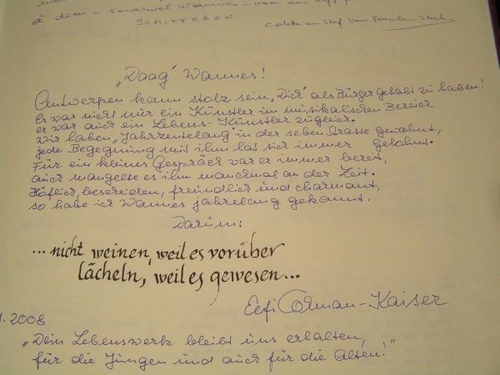 à dien - vaarwel Wannes - voor een
SCHITTEREN
„Daag" Wannes!
Antwerpen kann stolz sein, „Dich" als Bürger gehabt zu haben!
Er war nicht nur ein Künstler im musikalischen Bereich
er war auch ein Lebens-Künstler zugleich.
Wir haben „Jahrzentelang" in der selben Strasse gewohnt,
jede Begegnung mit ihm hat sich immer gelohnt.
Für ein kleines Gespräch war er immer bereit,
auch mangelte es ihm manchmal an der Zeit.
Höflich, bescheiden, freundlich und charmant,
so habe ich Wannes jahrelang gekannt.
Darum:
... nicht weinen, weil es vorüber
lächeln, weil es gewesen...
Eefi Corman-Kaiser
.2008
„Dein Lebenswerk bleibt uns erhalten,
für die Jungen und auch für die Alten!"